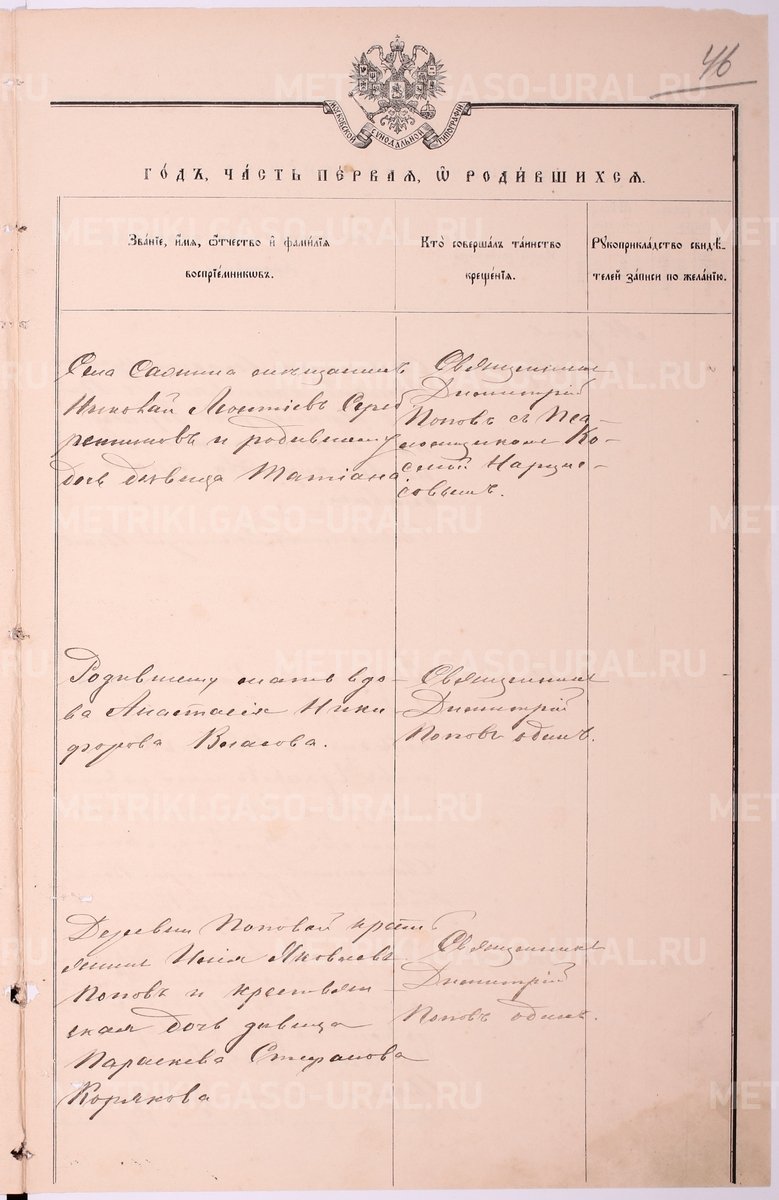 46
МОСКОВСКОЙ СѴНОДАЛЬНОЙ ТИПОГРАФІИ
ГОДЪ, ЧАСТЬ ПЕРВАЯ, Ѡ РОДИВШИХСЯ.
Званіе, имя, ѿчество и фамилія
воспріемниковъ.
Кто совершалъ таинство
крещенія.
Рукоприкладство свидѣ-
телей записи по желанію.
Села
Николай Леонтіевъ Сереб
ренниковъ и родившему
дочь дѣвица Татіана.
Священникъ
Димитрій
Поповъ съ Пса-
ломщикомъ Ко-
смой Нарцис-
совымъ.
Родившему мать вдо-
ва Анастасія Ники
форова Власова.
Священникъ
Димитрій
Поповъ одинъ.
Деревни Поповой кресть
янинъ Илія Яковлевъ
Поповъ и крестьян
ская дочь дѣвица
Параскева Стефанова
Корякова
Священникъ
Димитрій
Поповъ одинъ.
METRIKI.GASO-URAL.RU